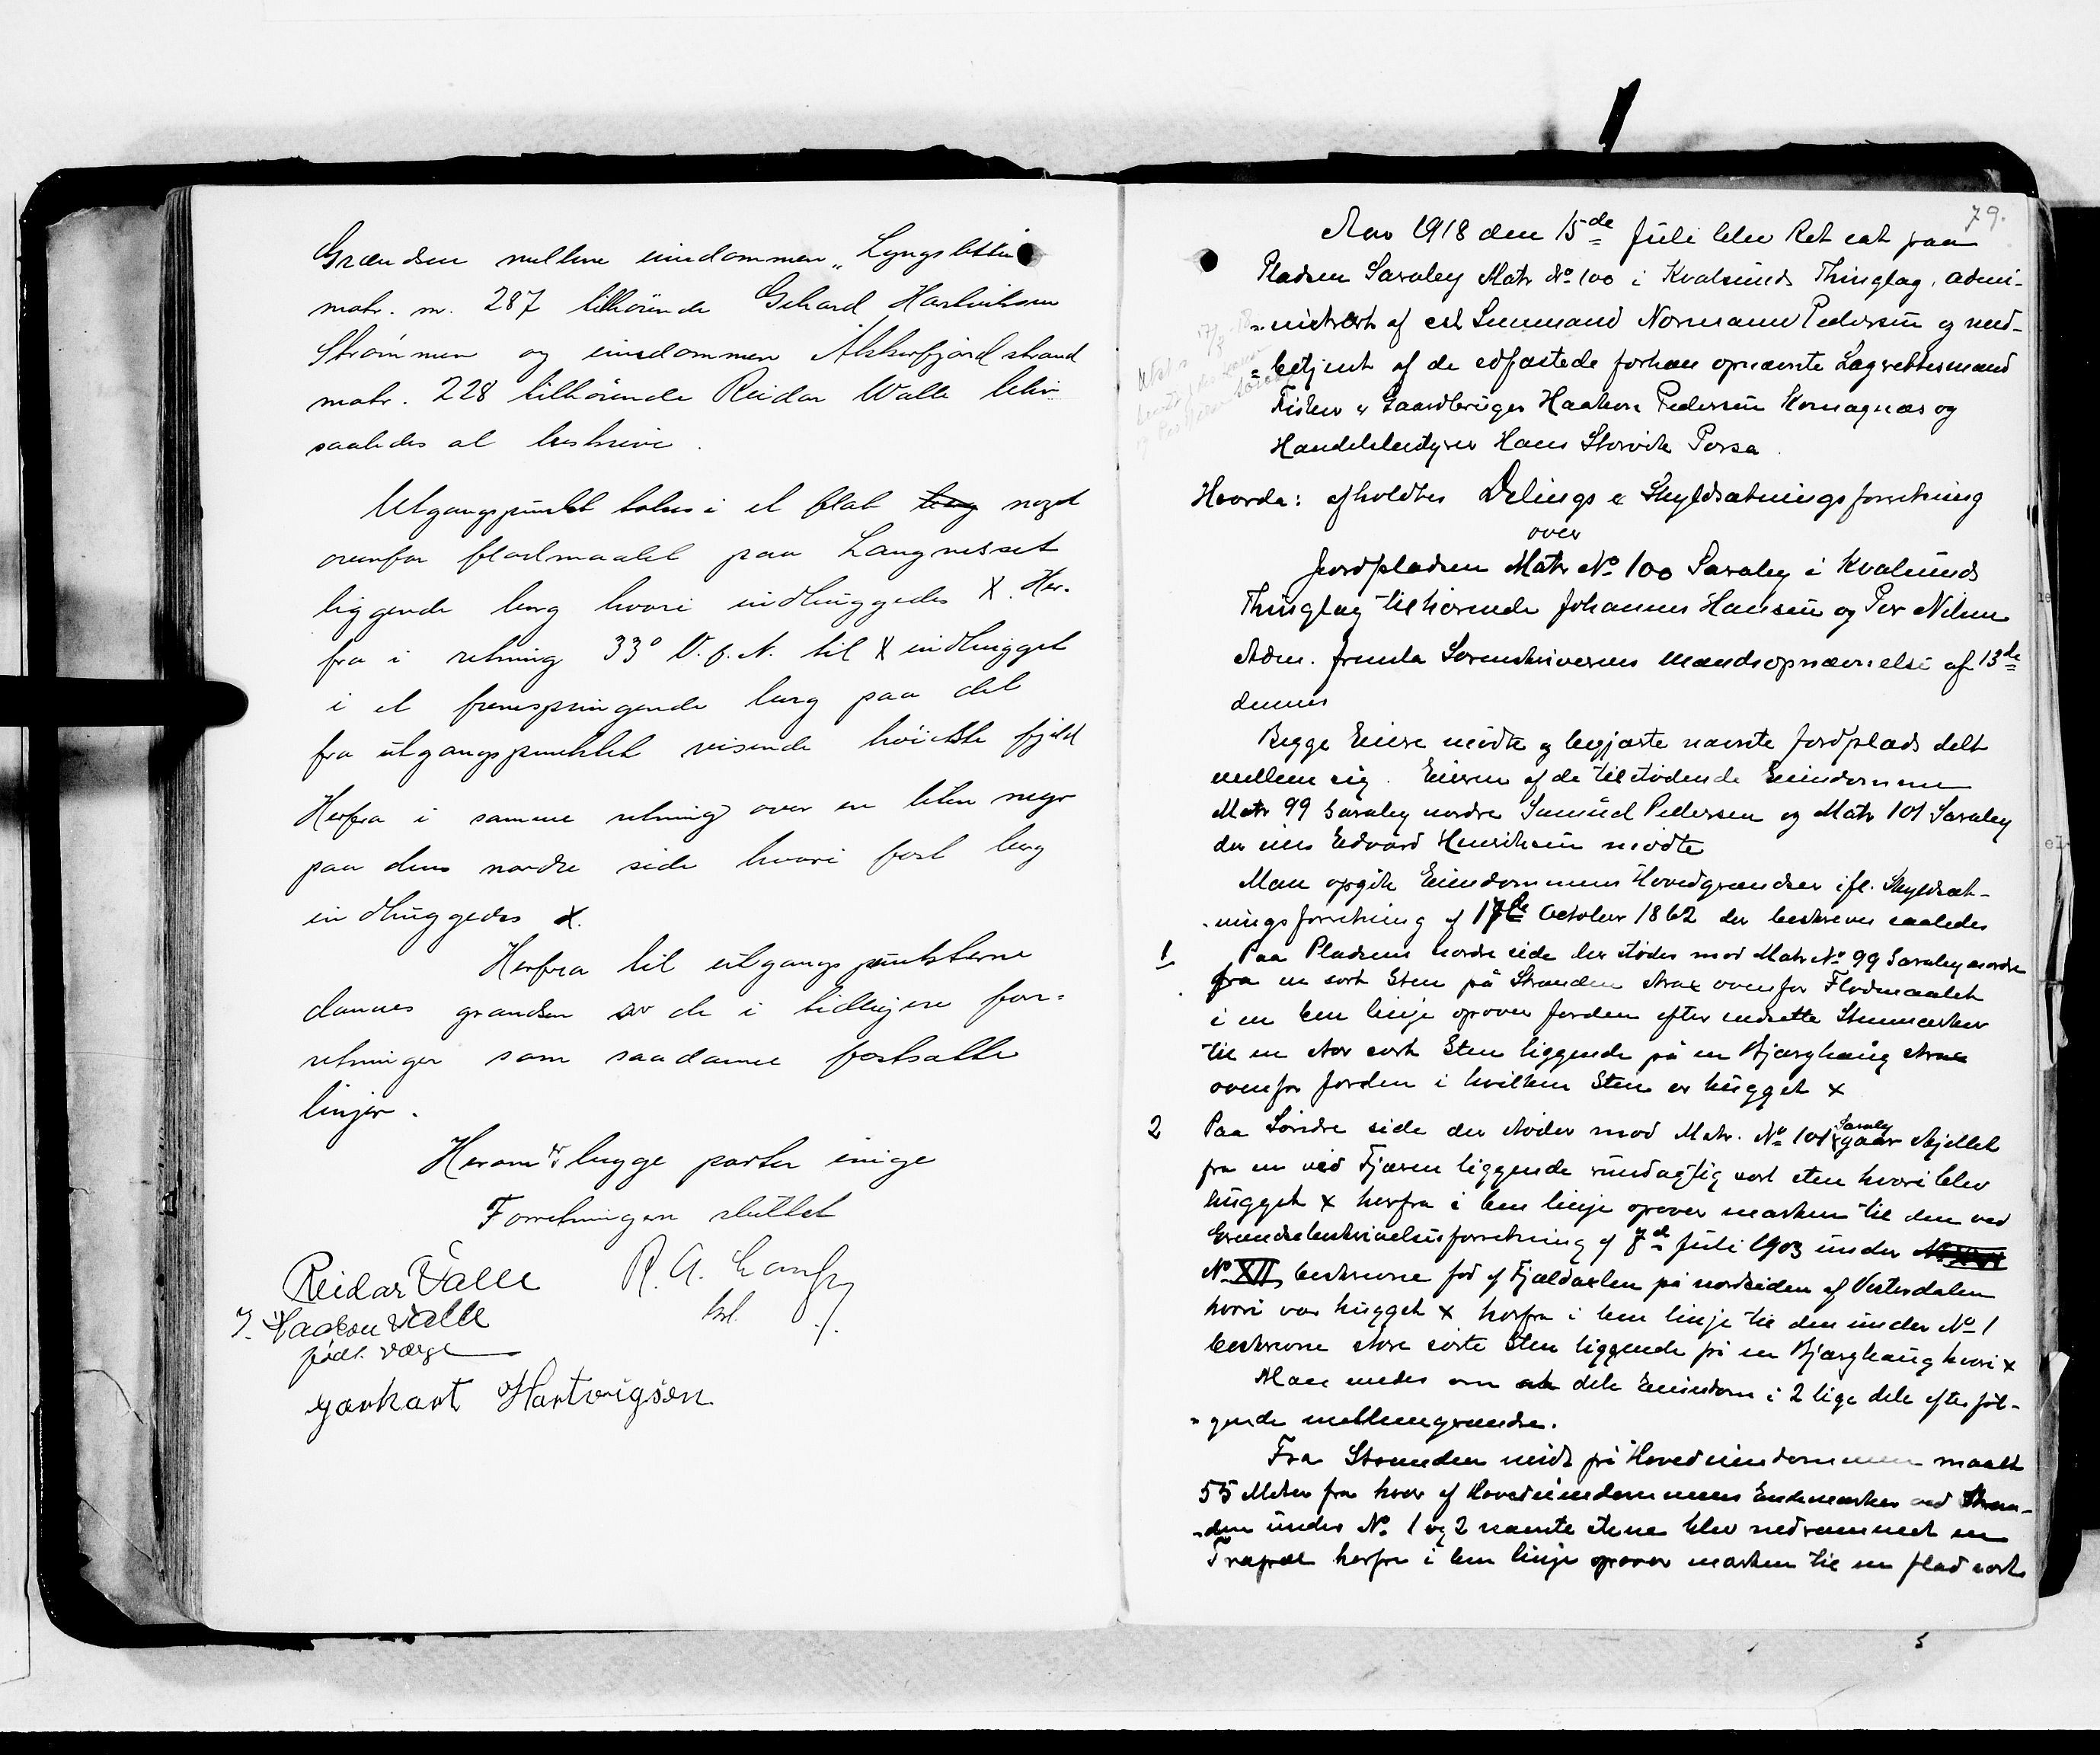 Grændsen mellem eiendommen „Lyngsletten"
matr. nr. 287 tilhörende Gehard Hartviksen
Strömmen og eiendommen Alskerfjordstrand
matr. 228 tilhörende Reidar Walle blir
saaledes at beskrive.
Utgangspunkt toknes i et flat berg noget
ovenfor flodmaalet paa Langnesset
liggende berg hvori indhuggedes X. Her-
fra i retning 33° V. f. N. til X indhugget
i et fremspringende berg paa det
fra utgangspunktet visende höieste fjeld
Herfra i samme retning over en liten myr
paa dens nordre side hvori fast berg
indhuggedes X.
Herfra til utgangspunkterne
dannes grændsen av de i tidligere for-
retninger som saadanne fastsatte
linjer.
Herom er begge parter enige
Forretningen sluttet
Reidar Valle R. A.
J. Haakon Valle
född. værge
gerhart Hartvigsen
79.
Aar 1918 den 15de Juli blev Ret sat paa
Pladsen Saraby Matr No 100 i Kvalsunds Thinglag, admi-
nistrert af cst Lensmand Normann Pedersen og med-
betjent af de edfæstede forhen opnævnte Lagrettesmænd
Fisker & Gaardbruger Haakon Pedersen Komagnæs og
Handelsbestyrer Hans Storvik Porsa.
Hvorda: afholdtes Delings & Skyldsætningsforretning
over
Jordpladsen Matr No 100 Saraby i Kvalsunds
Thinglag tilhörende Johannes Hansen og Per Nilsen
Adm. fremla Sorenskriverens Mandsopnævnelse af 13de
dennes
Begge Eiere mödte og begjærte nævnte Jordplads delt
mellem sig. Eieren af de tilstödende Eiendomme
Matr 99 Saraby nordre Samuel Pedersen og Matr 101 Saraby
der eies Edvard Henriksen mödte
Man opgik Eiendommens Hovedgrændser ifl. Skyldsæt-
ningsforretning af 17de October 1862 der beskrives saaledes
1 Paa Pladsens nordre side der stöder mod Matr No 99 Saraby nordre
fra en sort Sten på Stranden strax ovenfor Flodmaalet
i en ben linje opover Jorden efter nedsatte Stenmerker
til en stor sort Sten liggende på en Bjærghaug strax
ovenfor Jorden i hvilken Sten er hugget x
2 Paa Söndre side der stöder mod Matr. No 101 Saraby gaar Skjellet
fra en ved Fjæren liggende rundagtig sort sten hvori blev
hugget x herfra i ben linje opover marken til den ved
Grændsebeskrivelsesforretning af 8de Juli 1903 under
No XII beskrevne fod af Fjeldaxlen på nordsiden af Vesterdalen
hvori var hugget x herfra i ben linje til den under No 1
beskrevne store sorte Sten liggende på en Bjærghaug hvori x
Man enedes om at dele Eiendom i 2 lige dele efter föl-
gende mellemgrændse.
Fra Stranden midt på Hovedeiendommen maalt
55 Meter fra hver af Hovedeiendommens Endemerker ved Stran-
den under No 1 og 2 nævnte stene blev nedrammet en
Træpæl herfra i ben linje opover marken til en flad sort